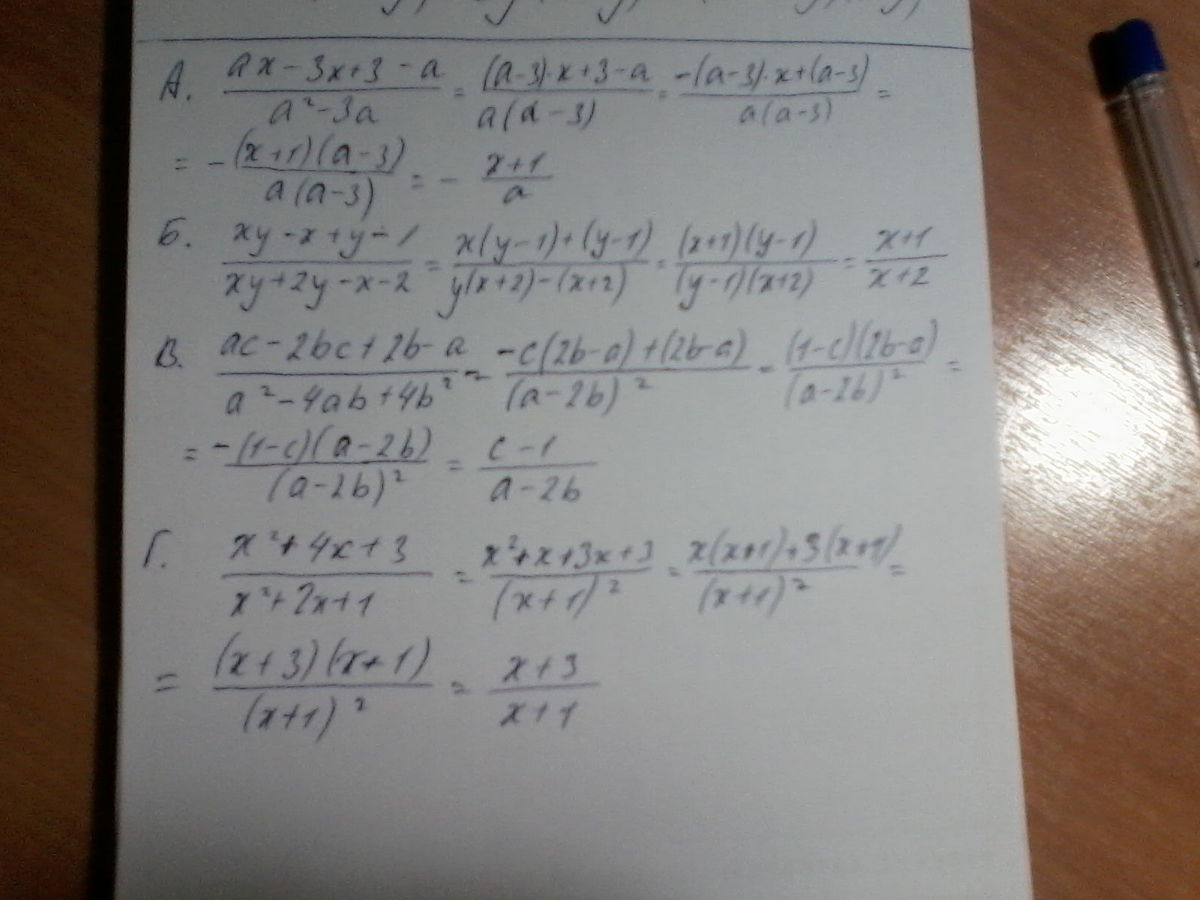 А. (ax - 3x + 3 - a)/(a² - 3a) = ((a-3)·x + 3 - a)/(a(a - 3)) = (-(a-3)·x + (a-3))/(a(a-3)) =
= - ((x+1)(a-3))/(a(a-3)) = - (x+1)/a
Б. (xy - x + y - 1)/(xy + 2y - x - 2) = (x(y-1) + (y-1))/(y(x+2) - (x+2)) = ((x+1)(y-1))/((y-1)(x+2)) = (x+1)/(x+2)
В. (ac - 2bc + 2b - a)/(a² - 4ab + 4b²) = (-c(2b-a) + (2b-a))/((a-2b)²) = ((1-c)(2b-a))/((a-2b)²) =
= (-(1-c)(a-2b))/((a-2b)²) = (c-1)/(a-2b)
Г. (x² + 4x + 3)/(x² + 2x + 1) = (x² + x + 3x + 3)/((x+1)²) = (x(x+1) + 3(x+1))/((x+1)²) =
= ((x+3)(x+1))/((x+1)²) = (x+3)/(x+1)